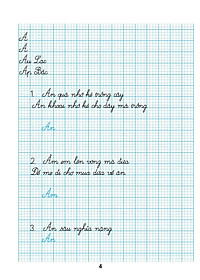 Ă
Â
Âu Lạc
Ấp Bắc
1. Ăn quả nhớ kẻ trồng cây
Ăn khoai nhớ kẻ cho dây mà trồng
Ăn
2. Ẵm em lên võng mà đưa
Để mẹ đi chợ mua dưa về ăn
Ẵm
3. Ân sâu nghĩa nặng
Ân
4